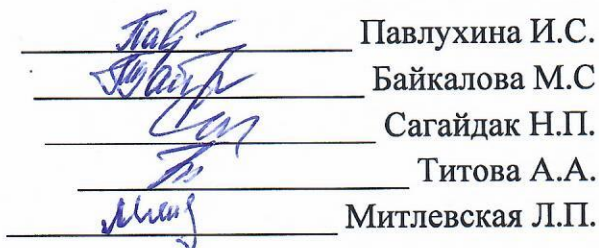 Павлухина И.С.
Байкалова М.С
Сагайдак Н.П.
Титова А.А.
Митлевская Л.П.